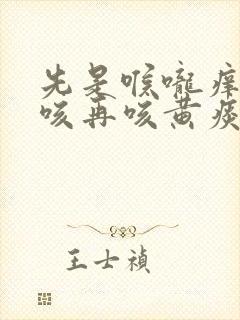 先是喉咙痒
咳再咳黄痰
王士禎